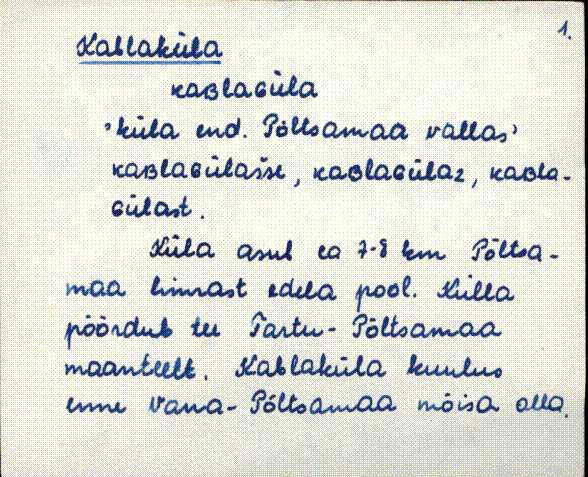 1.
Kablaküla
kaʙlaɢüla
'küla end. Põltsamaa vallas'
kaʙlaɢülašše, kaʙlaɢülaz, kaʙla-
ɢülast.
Küla asub ca 7-8 km Põltsa-
maa linnast edela pool. Külla
pöördub tee Tartu-Põltsamaa
maanteelt. Kablaküla kuulus
enne Vana-Põltsamaa mõisa alla.